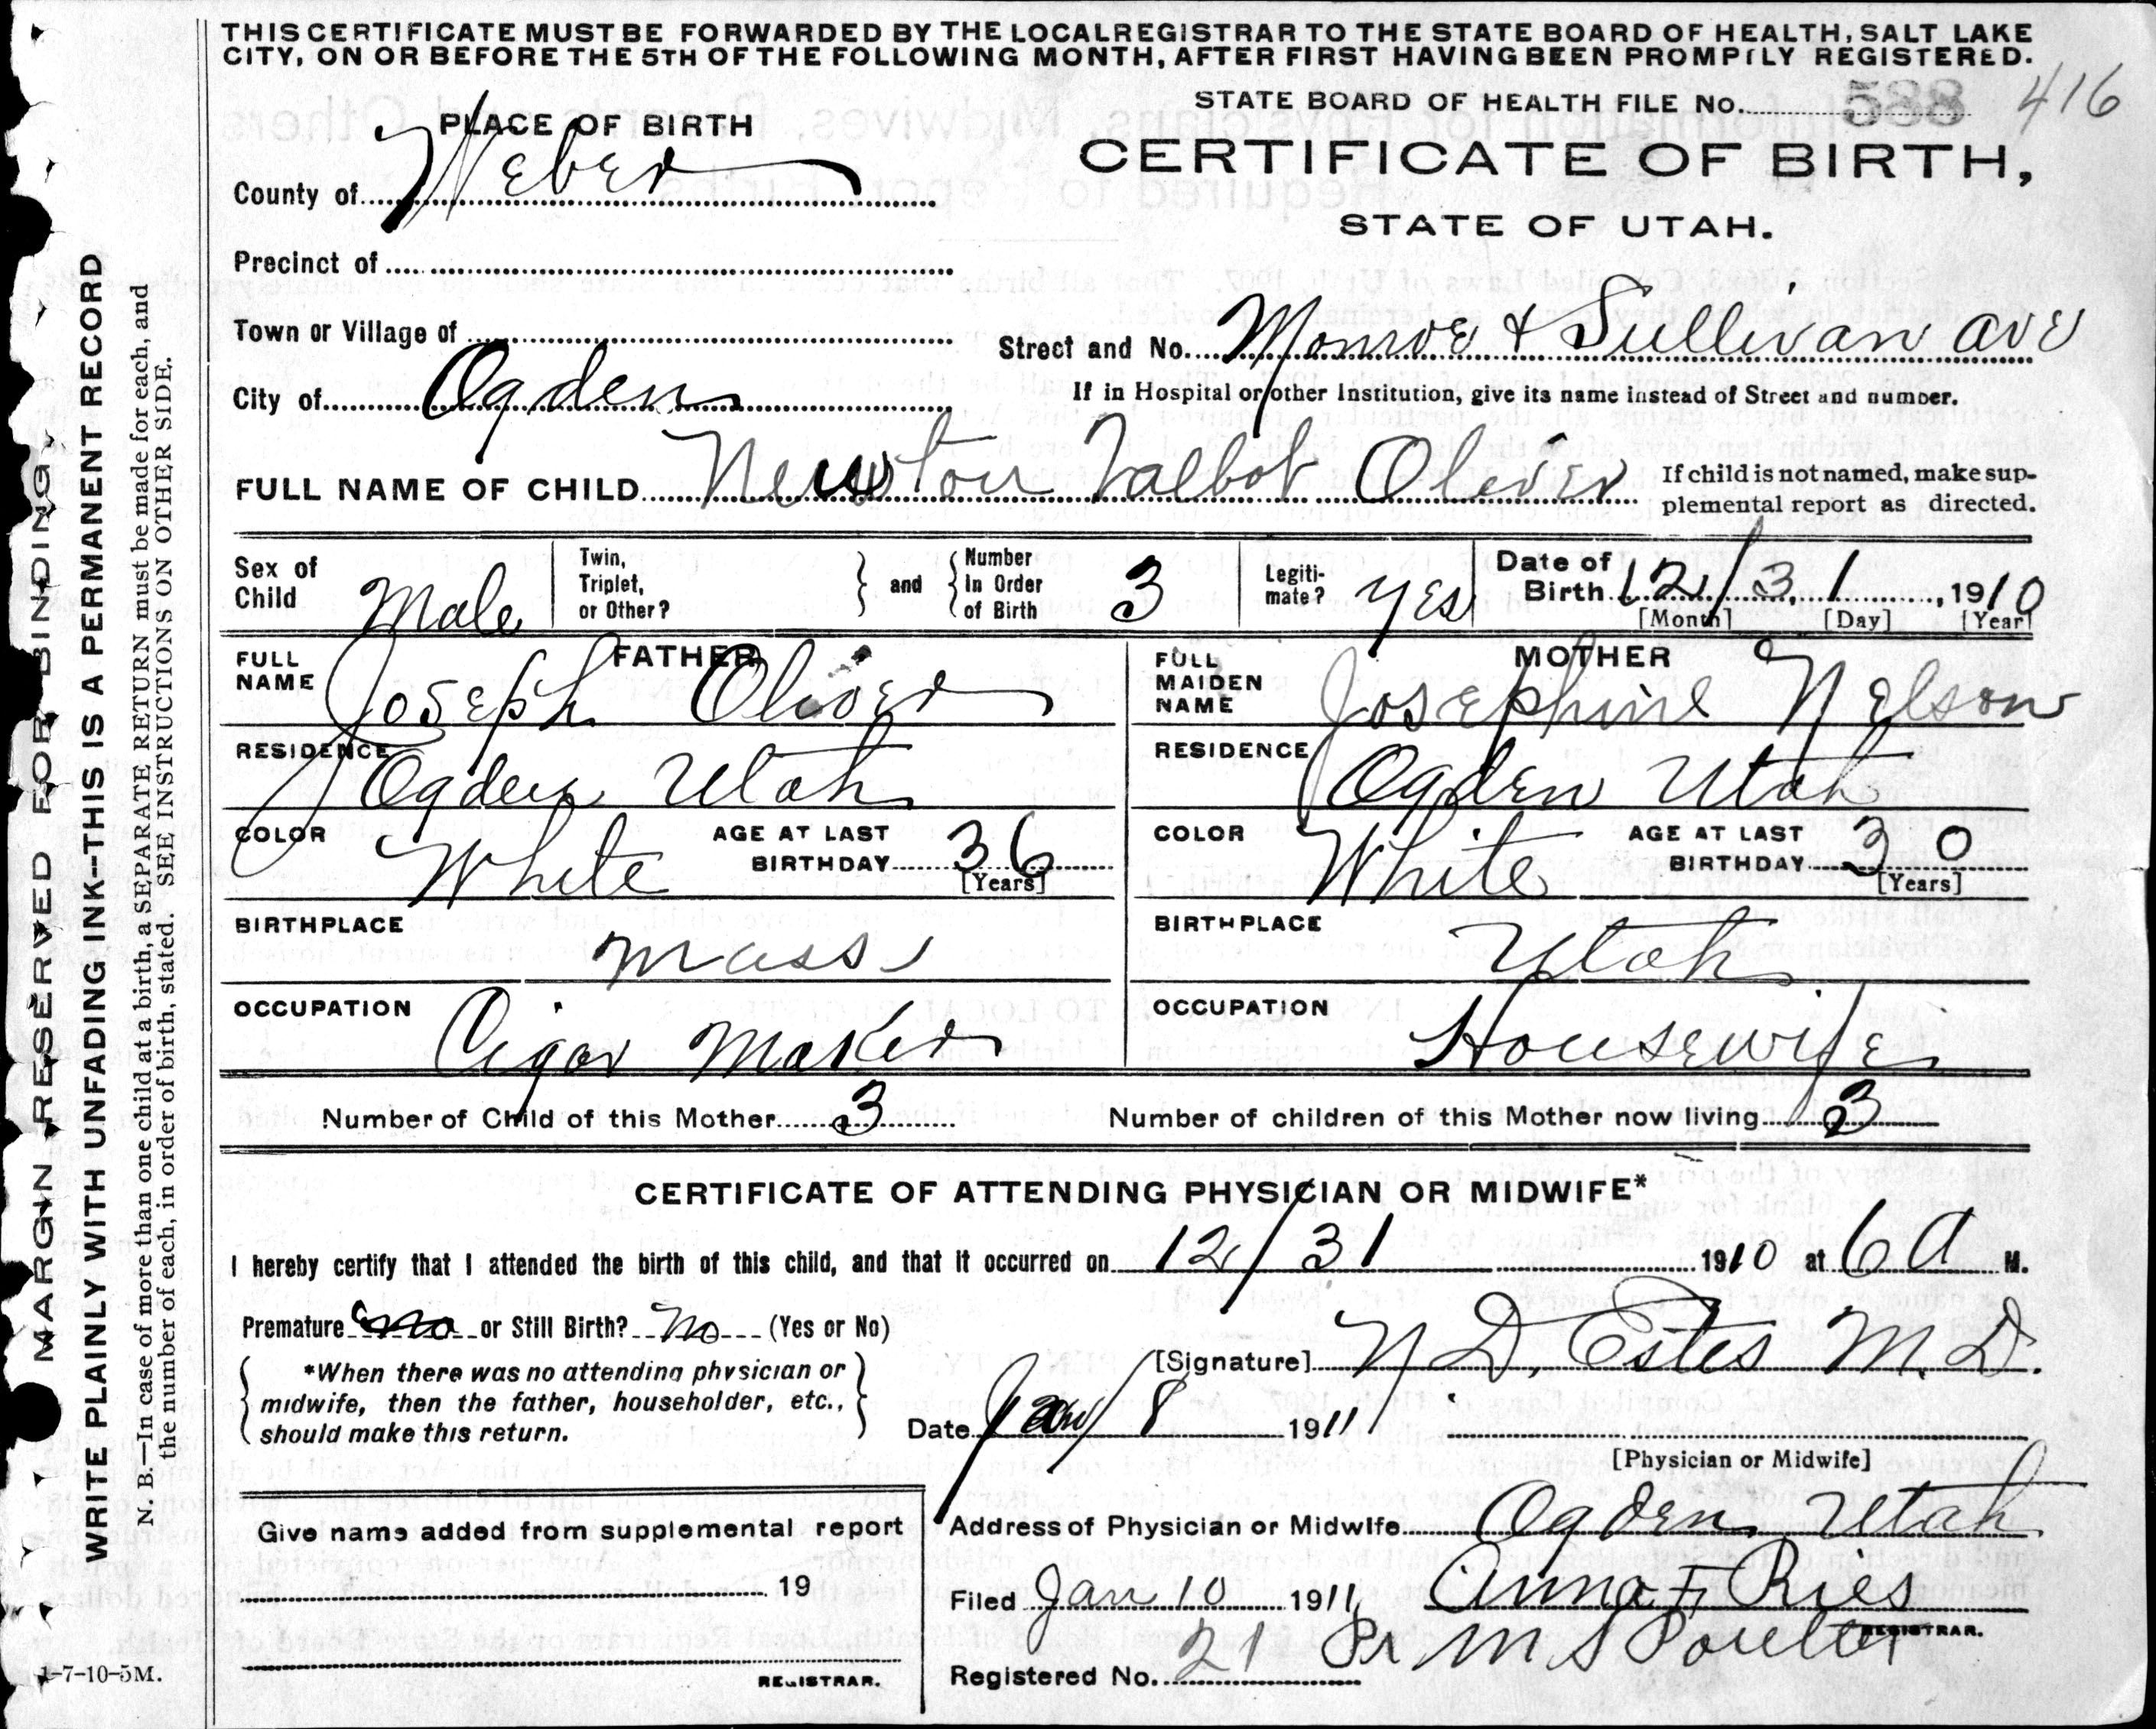 THIS CERTIFICATE MUST BE FORWARDED BY THE LOCAL REGISTRAR TO THE STATE BOARD OF HEALTH, SALT LAKE
CITY, ON OR BEFORE THE 5TH OF THE FOLLOWING MONTH, AFTER FIRST HAVING BEEN PROMPTLY REGISTERED.
STATE BOARD OF HEALTH FILE No. 588 416
PLACE OF BIRTH
CERTIFICATE OF BIRTH,
County of Weber
STATE OF UTAH.
Precinct of
Town or Village of
Street and No. Monroe & Sullivan ave
City of Ogden
If in Hospital or other Institution, give its name instead of Street and number.
FULL NAME OF CHILD Newton Talbot Oliver
If child is not named, make sup-
plemental report as directed.
Sex of Child Male
Twin, Triplet, or Other?
and
Number In Order of Birth 3
Legiti-mate? Yes
Date of Birth 12/31, 1910
[Month] [Day] [Year]
FATHER
FULL NAME Joseph Oliver
MOTHER
FULL MAIDEN NAME Josephine Nelson
RESIDENCE Ogden Utah
RESIDENCE Ogden Utah
COLOR White AGE AT LAST BIRTHDAY 36 [Years]
COLOR White AGE AT LAST BIRTHDAY 30 [Years]
BIRTHPLACE Mass
BIRTHPLACE Utah
OCCUPATION Cigar Maker
OCCUPATION Housewife
Number of Child of this Mother 3
Number of children of this Mother now living 3
CERTIFICATE OF ATTENDING PHYSICIAN OR MIDWIFE*
I hereby certify that I attended the birth of this child, and that it occurred on 12/31 1910 at 6 A M.
Premature no or Still Birth? No (Yes or No)
*When there was no attending physician or
midwife, then the father, householder, etc.,
should make this return.
[Signature] N D. Estes M.D.
Date Jan 8 1911
[Physician or Midwife]
Give name added from supplemental report
19
REGISTRAR.
Address of Physician or Midwife Ogden Utah
Filed Jan 10 1911 Anna F. Ries
REGISTRAR.
Pr M S Poulter
Registered No. 21
1-7-10-5M.
MARGIN RESERVED FOR BINDING.
WRITE PLAINLY WITH UNFADING INK--THIS IS A PERMANENT RECORD
N. B.—In case of more than one child at a birth, a SEPARATE RETURN must be made for each, and
the number of each, in order of birth, stated. SEE INSTRUCTIONS ON OTHER SIDE.